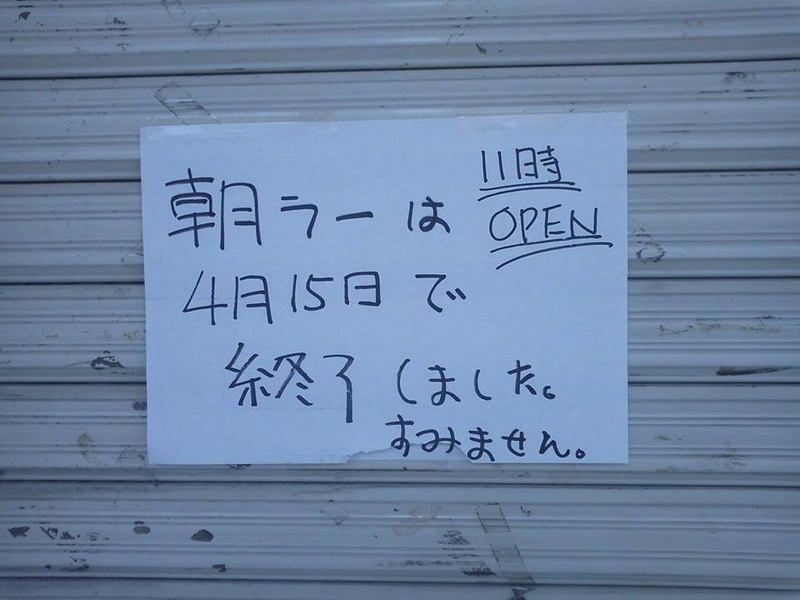 朝ラーは
11時
OPEN
4月15日で
終了しました。
すみません。